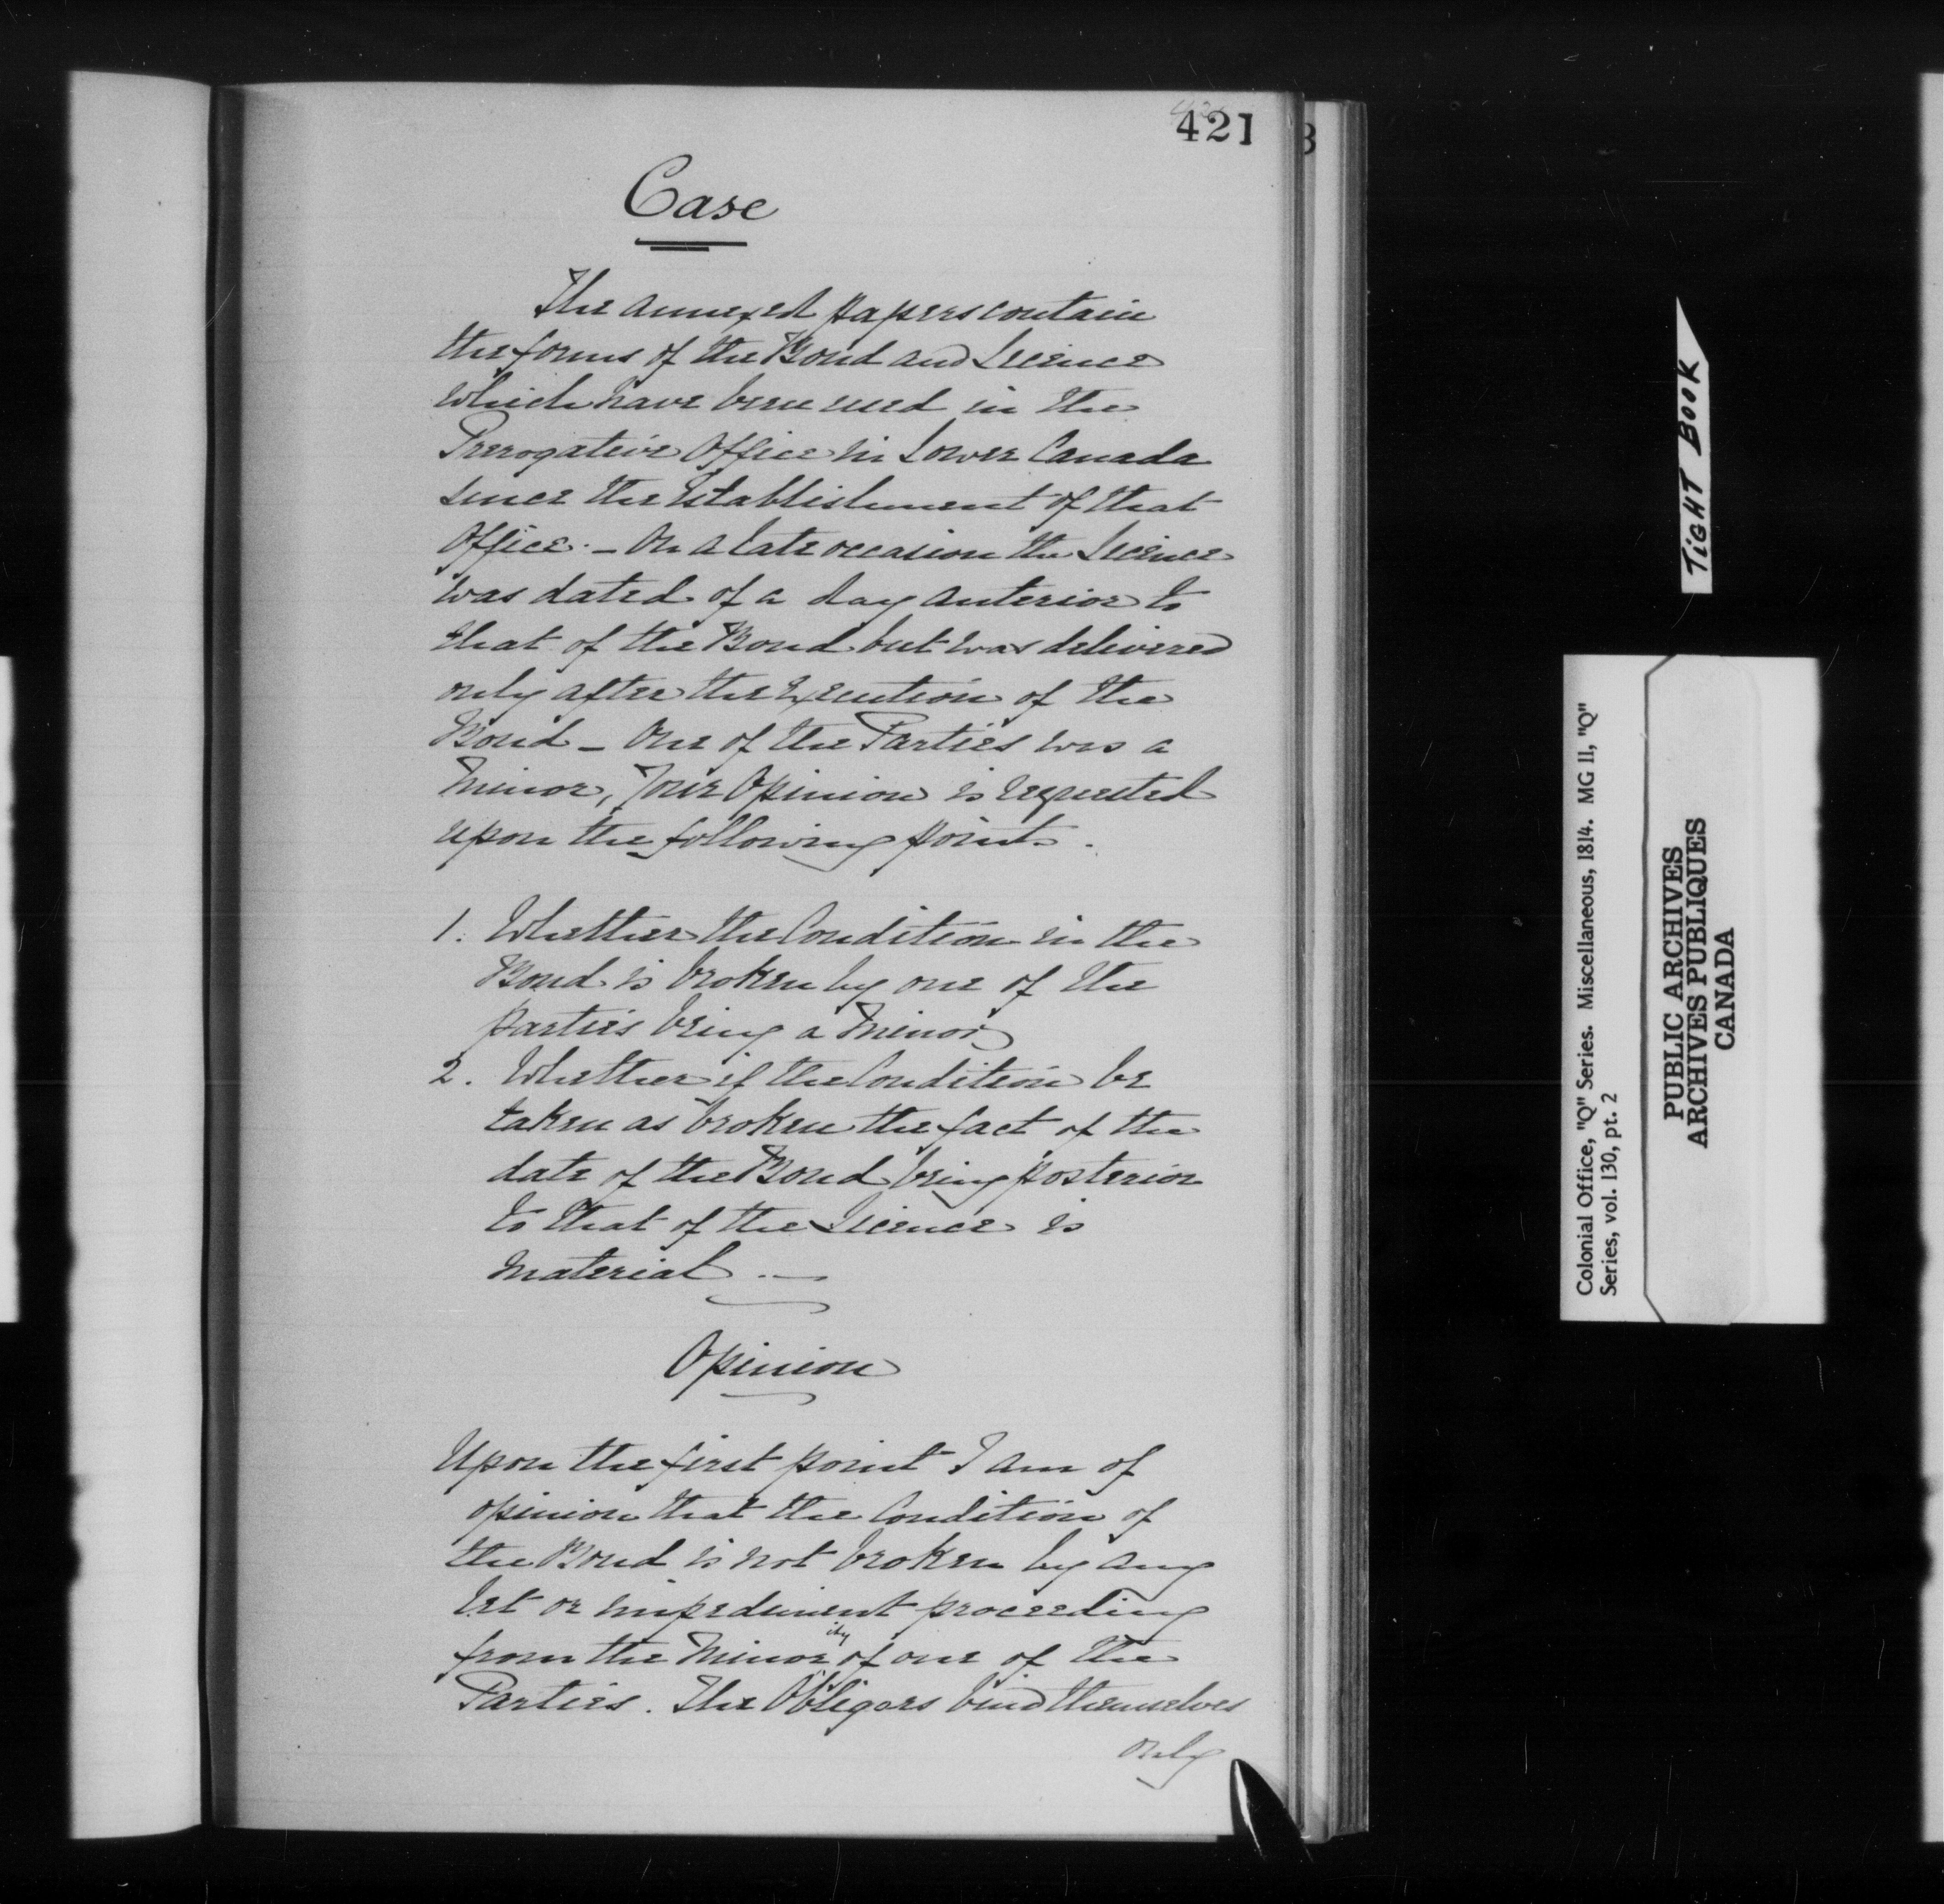 421
Case
The annexed papers contain
the forms of the Bond and Licence
which have been used in the
Prerogative Office in Lower Canada
since the Establishment of that
Office. — On a late occasion the Licence
was dated of a day anterior to
that of the Bond but was delivered
only after the Execution of the
Bond — One of the Parties was a
Minor, Your Opinion is requested
upon the following points.
1. Whether the Condition in the
Bond is broken by one of the
parties being a Minor
2. Whether if the Condition be
taken as broken the fact of the
date of the Bond being posterior
to that of the Licence is
Material . —
Opinion
Upon the first point I am of
opinion that the Condition of
the Bond is not broken by any
let or impediment proceeding
from the Minority of one of the
Parties. The Obligors bind themselves
only
TIGHT BOOK
Colonial Office, "Q" Series. Miscellaneous, 1814. MG 11, "Q"
Series, vol. 130, pt. 2
PUBLIC ARCHIVES
ARCHIVES PUBLIQUES
CANADA